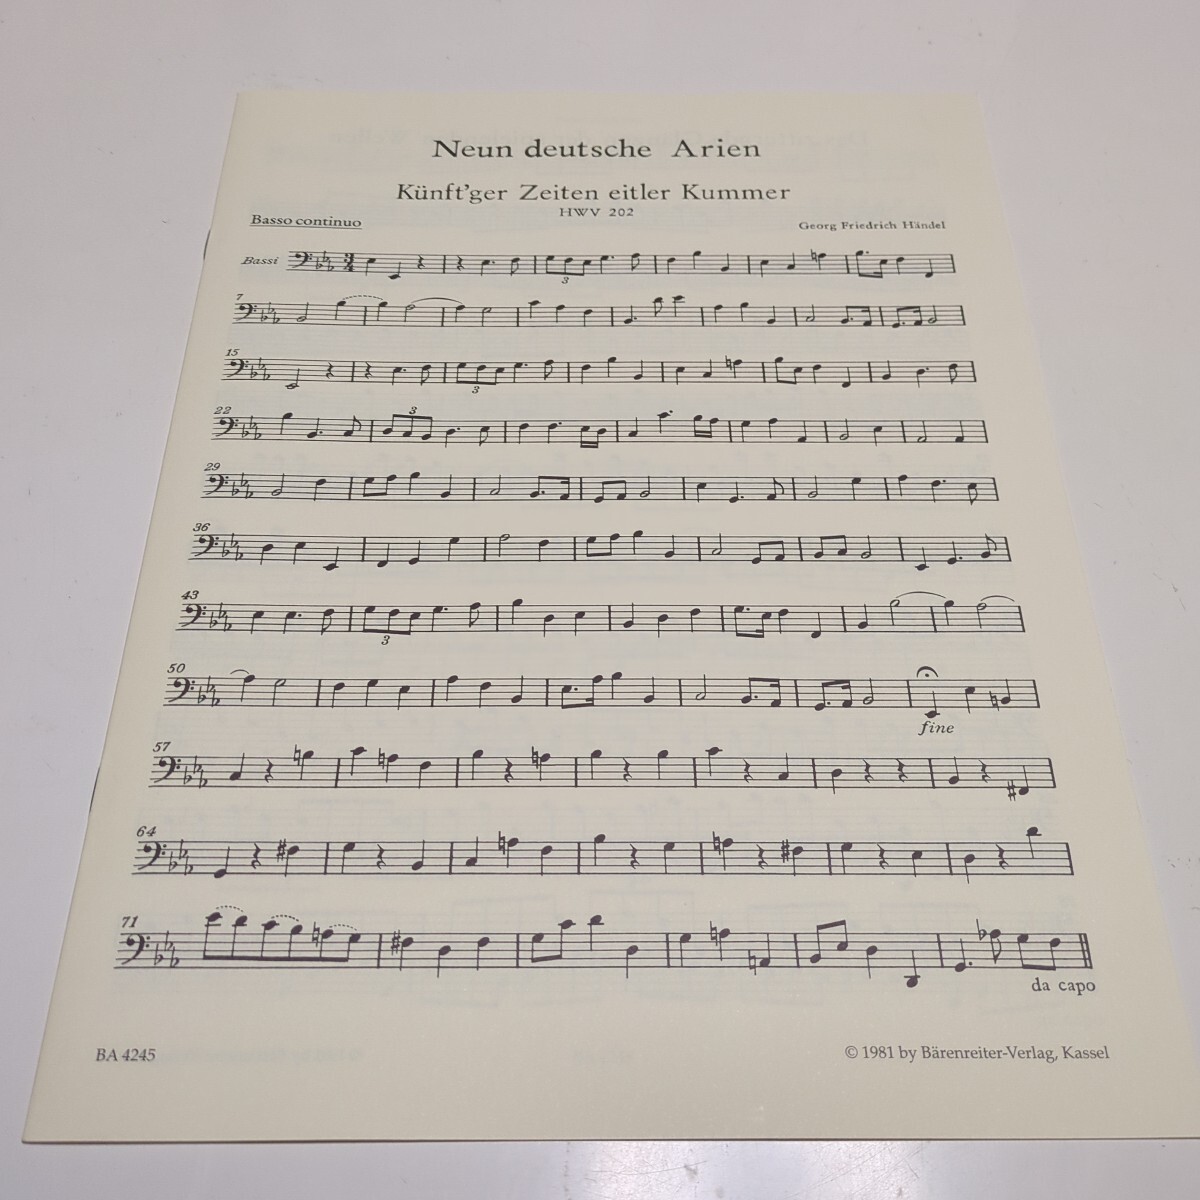 Neun deutsche Arien
Künft'ger Zeiten eitler Kummer
HWV 202
Basso continuo
Georg Friedrich Händel
Bassi
3
4
3
7
15
3
22
3
29
36
43
3
50
fine
57
64
71
da capo
BA 4245
© 1981 by Bärenreiter-Verlag, Kassel